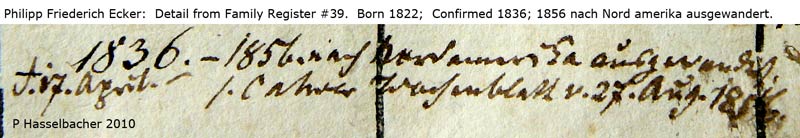 Philipp Friederich Ecker: Detail from Family Register #39. Born 1822; Confirmed 1836; 1856 nach Nord amerika ausgewandert.
1836. – 1856. nach Nordamerika ausgewandert
d. 17. April. – s. Calwer Wochenblatt v. 27. Aug. 1856
P Hasselbacher 2010